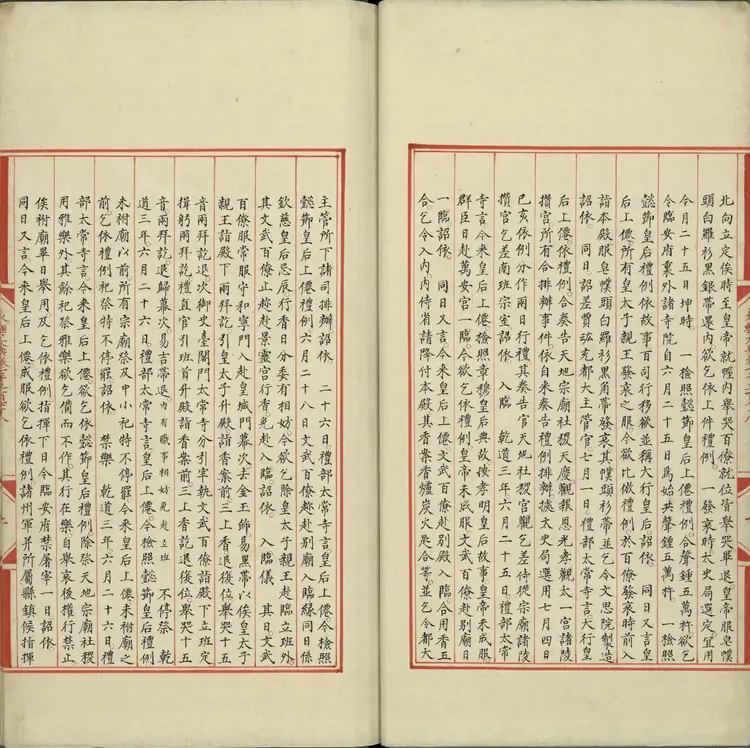 北向立定俟時至皇帝就幄內舉哭百僚就位皆舉哭畢退皇帝服皂幞
頭白羅衫黑銀帶還內欲乞依上件禮例 一發哀時太史局選定宜用
今月二十五日坤時 一檢照懿節皇后上僊禮例合聲鍾五萬杵欲乞
令臨安府裏外諸寺院自六月二十五日為始共聲鍾五萬杵 一檢照
懿節皇后禮例依故事百司行移欲並稱大行皇后詔依 同日又言皇
后上僊所有皇太子親王發哀之服今欲比倣禮例於百僚發哀時前入
詣本殿服皂幞頭白羅衫黑角帶發哀其幞頭衫帶並乞令文思院製造
詔依 同日詔差賈竑充都大主管官七月一日禮部太常寺言大行皇
后上僊依禮例合奏告天地宗廟社稷天慶觀報恩光孝觀太一宮諸陵
攢宮所有合排辦事件依自來奏告禮例排辦據太史局選用七月四日
己亥依例分作兩日行禮其奏告官天地社稷宮觀乞差待從宗廟諸陵
攢宮乞差南班宗室詔依 入臨 乾道三年六月二十五日禮部太常
寺言今來皇后上僊檢照章穆皇后典故按孝明皇后故事皇帝未成服
群臣日赴萬安宮一臨今欲乞依禮例皇帝未成服文武百僚赴別廟日
一臨詔依 同日又言今來皇后上僊文武百僚赴別殿入臨合用香五
合乞令入內內侍省請降付本殿其香案香爐炭火匙合等並乞令都大
主管所下諸司排辦詔依 二十六日禮部太常寺言皇后上僊今檢照
懿節皇后上僊禮例六月二十八日文武百僚趁赴別廟入臨緣同日係
欽慈皇后忌辰行香日分委有相妨今欲乞除皇太子親王赴臨立班外
其文武百僚止趁赴景靈宮行香免赴入臨詔依 入臨儀 其日文武
百僚服常服守和寧門入赴皇城門幕次去金玉飾易黑帶以俟皇太子
親王詣殿下兩拜訖引皇太子升殿詣香案前三上香退復位舉哭十五
音兩拜訖退次御史臺閤門太常寺分引宰執文武百僚詣殿下立班定
揖躬兩拜訖禮直官引班首升殿詣香案前三上香訖退復位舉哭十五
音兩拜訖退歸幕次易吉帶退內有職事相妨免赴立班 不停祭 乾
道三年六月二十六日禮部太常寺言皇后上僊今檢照懿節皇后禮例
未祔廟以前所有宗廟祭及中小祀特不停罷今來皇后上僊未祔廟之
前乞依禮例祀祭特不停罷詔依 禁樂 乾道三年六月二十六日禮
部太常寺言今來皇后上僊欲乞依懿節皇后禮例除祭天地宗廟社稷
用雅樂外其餘祀祭雅樂欲乞備而不作其行在樂自舉哀後權行禁止
俟祔廟畢日舉用及乞依禮例指揮下日令臨安府禁屠宰一日詔依
同日又言今來皇后上僊成服欲乞依禮例諸州軍并所屬縣鎮候指揮